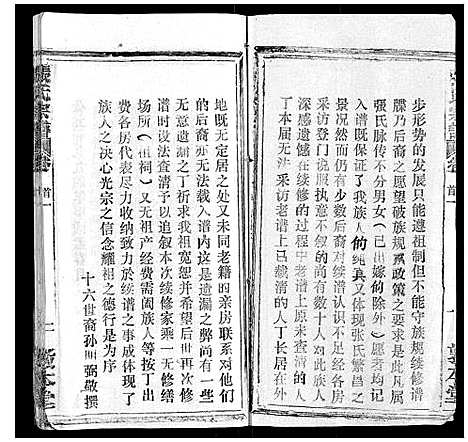 步形势的发展只能遵祖制但不能守族规续修谱
牒乃后裔之愿望破族规飘政策之要求是此凡属
張氏脉传子孙不分男女（已出嫁的除外）愿者均记
入谱内这样既说明了我族人的纯真又体现张氏繁昌之
景况然而仍有少数后裔对续谱认识不足经各房
采访登门说服执意不叙的尚有数十人对此族人
深感遗憾在续修的过程中老谱上原未查清的人
丁本届无法采访老谱上已裁清的人丁长居在外
地既无定居之处又未同老籍的亲房联系对他们
的后裔亦无法载入谱内这是遗漏之弊尚有一些
无意遗漏之丁祈求我祖宽恕并希望后世再次修
谱时设法查清予以追叙本次续修家乘一无修缮
场所（祖祠）又无祖产经费需阖族人等按丁出
费各房代表尽力收纳致力於续谱之事成体现了
族人之决心光宗之信念耀祖之德行是为序
十六世裔孙 强敬撰
張氏宗譜
首